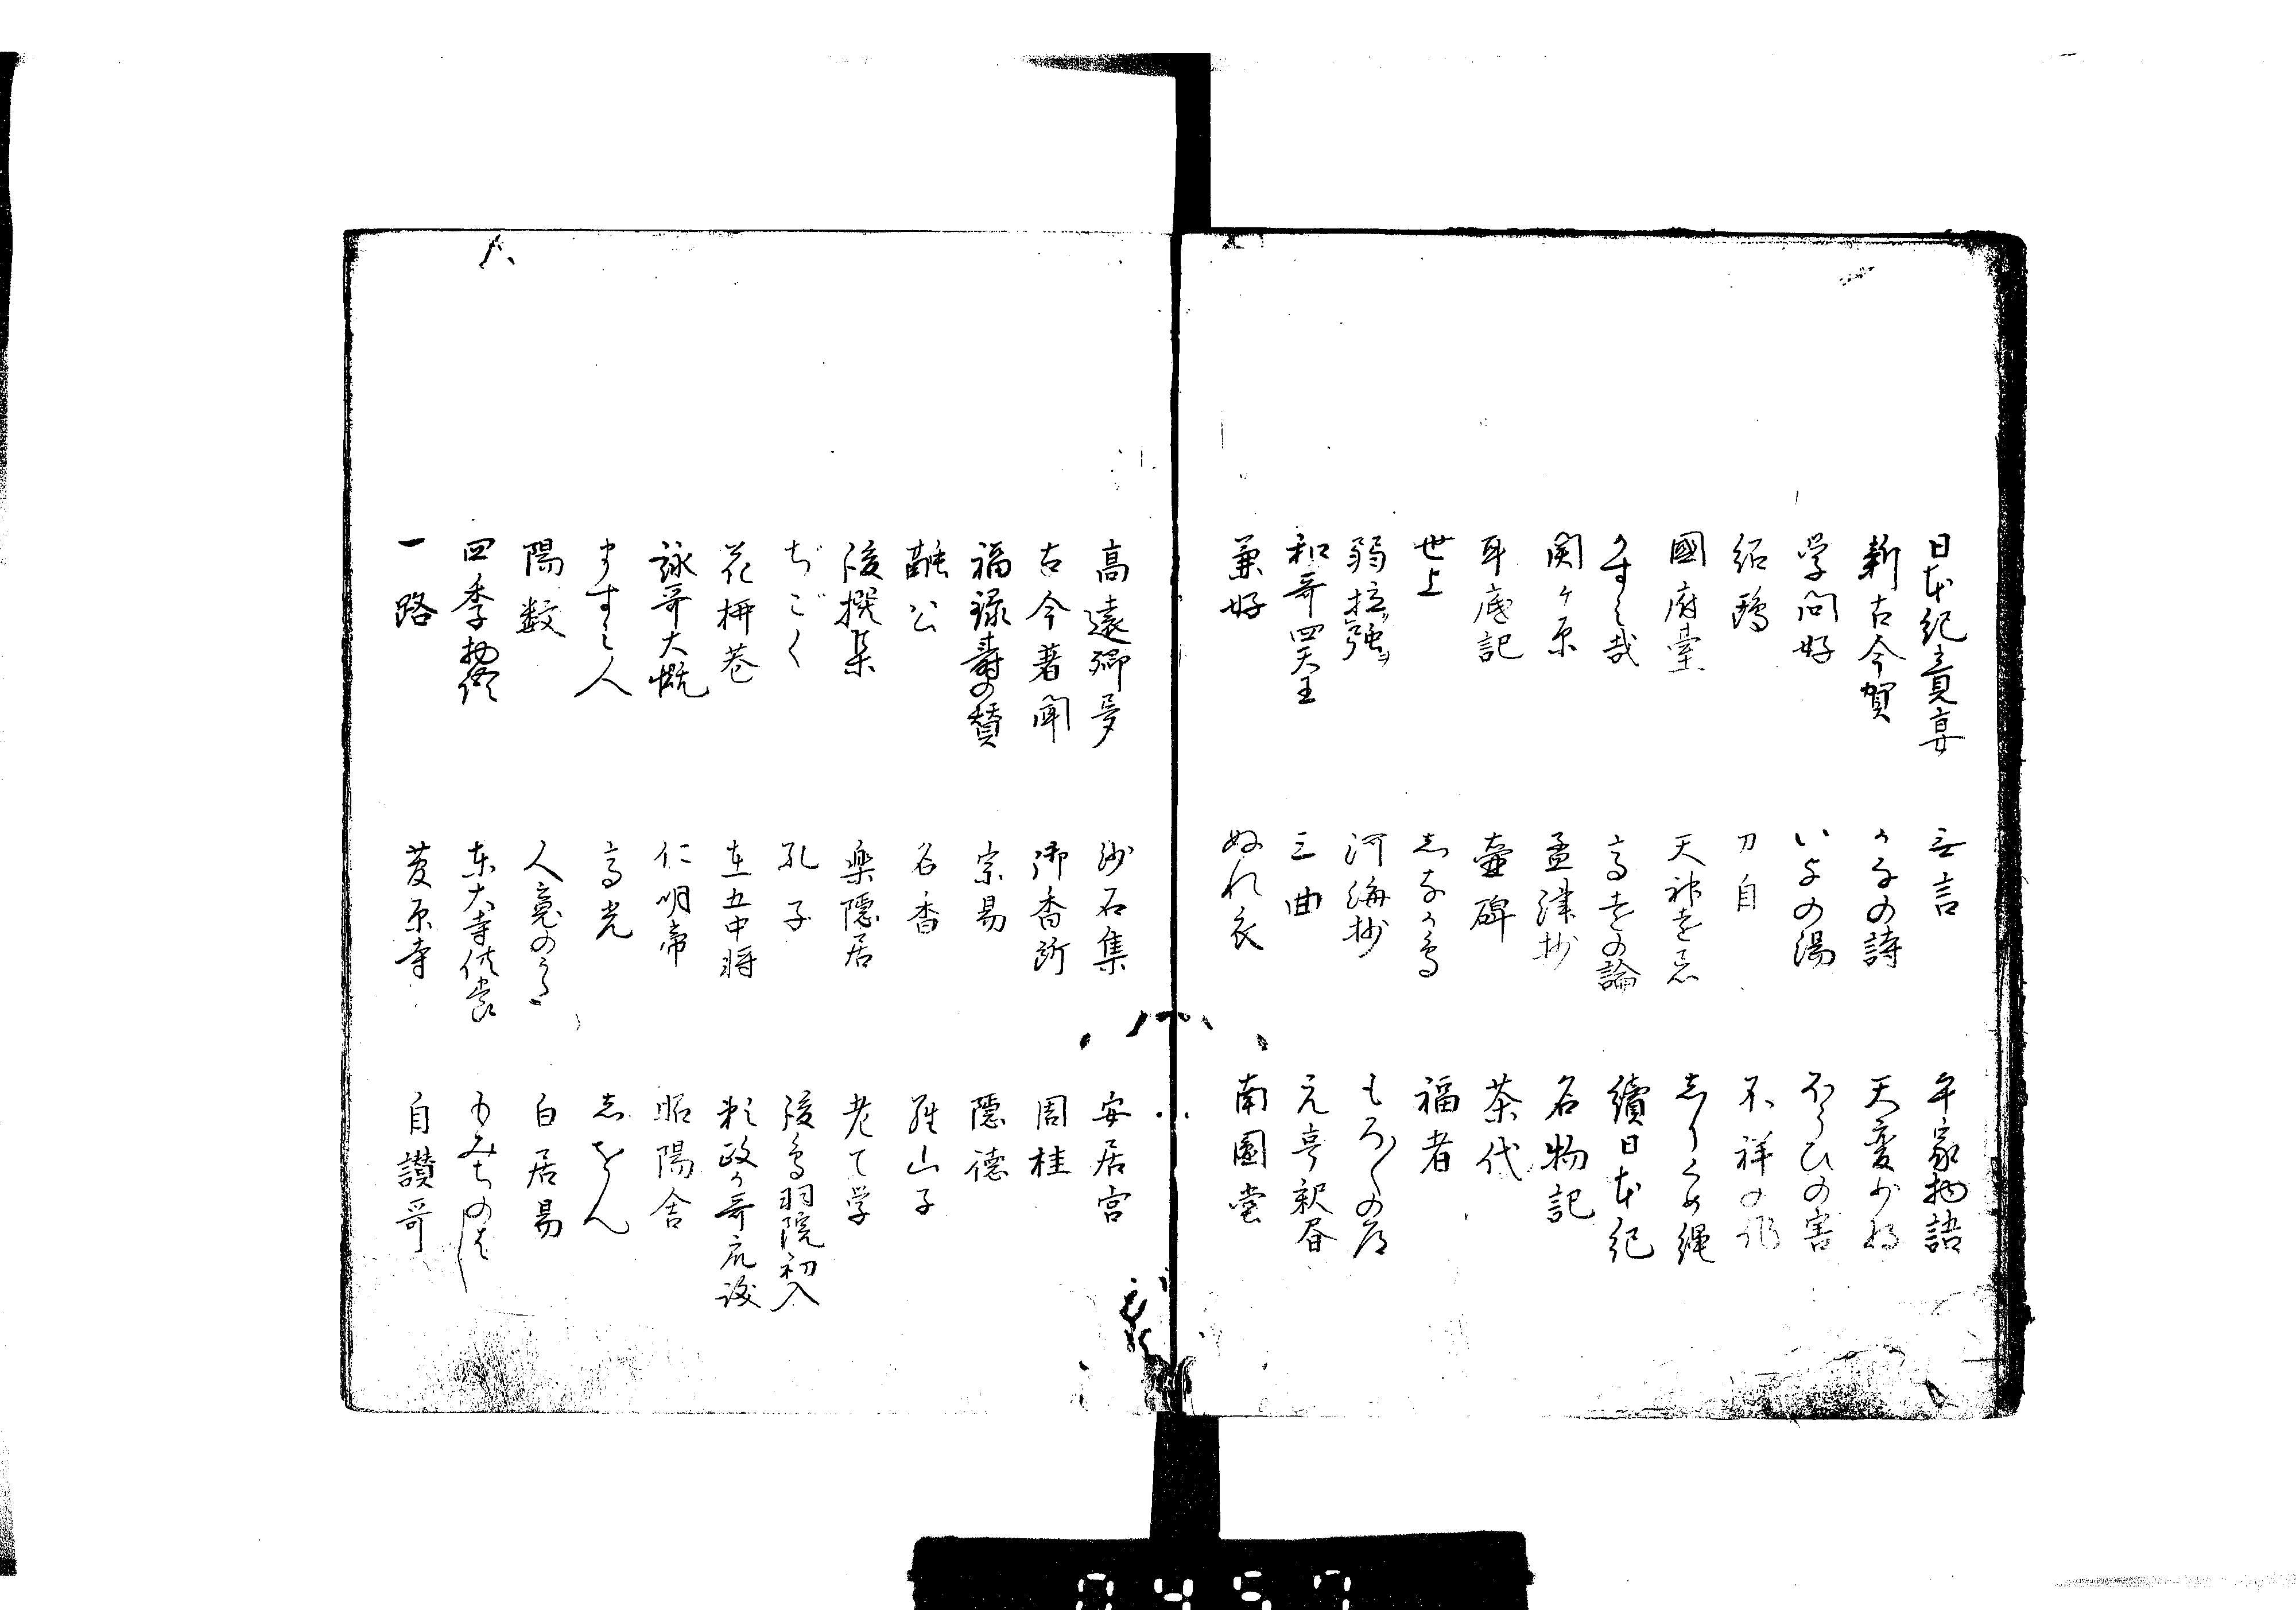 日本紀竟宴　無言　平家物語
新古今賀　うたの詩　天変
学問好　いよの湯　の害
紹鴎　刀自　不祥の
國府臺　天神を忌　しりくめ縄
哉　高きの論　續日本紀
関ヶ原　孟津抄　名物記
耳底記　壷碑　茶代
世上　しなか鳥　福者
弱拉強　河海抄　もろ〱の
和哥四天王　三曲　元亨釈書
兼好　ぬれ衣　南圓堂
高遠卿夢　沙石集　安居宮
古今著聞　御香所　周桂
福禄壽の賛　宗易　隠徳
融公　名香　羅山子
後撰集　楽隠居　老て学
ぢごく　孔子　後鳥羽院初入
花柳巷　在五中将　頼政か哥
詠哥大概　仁明帝　昭陽舎
ますみ人　高光　しをん
陽数　人毫の　白居易
四季物語　東大寺供養　のは
一路　菅原寺　自讃哥
0457